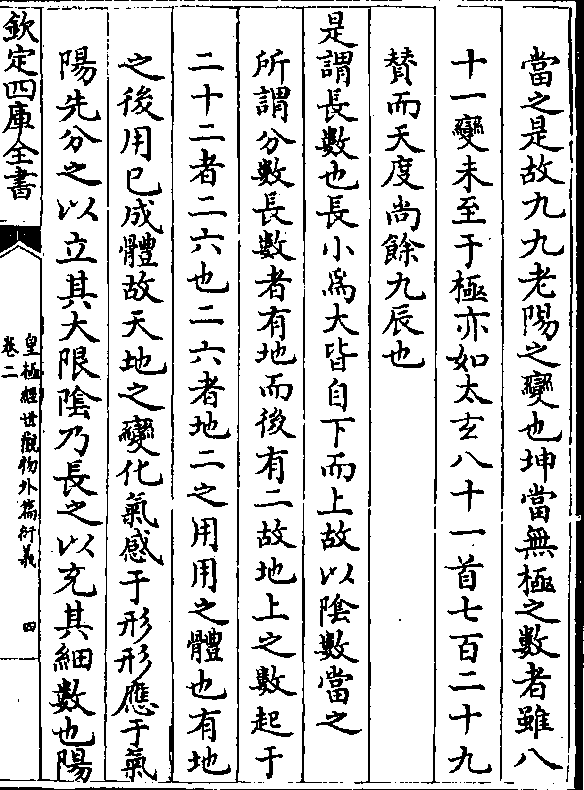 當之是故九九老陽之變也坤當無極之數者雖八
十一變未至于極亦如太玄八十一首七百二十九
贊而天度尚餘九辰也
是謂長數也長小為大皆自下而上故以陰數當之
所謂分數長數者有地而後有二故地上之數起于
二十二者二六也二六者地二之用用之體也有地
之後用已成體故天地之變化氣感于形形應于氣
陽先分之以立其大限陰乃長之以充其細數也陽
欽定四庫全書
皇極經世觀物外篇衍義
卷二
四